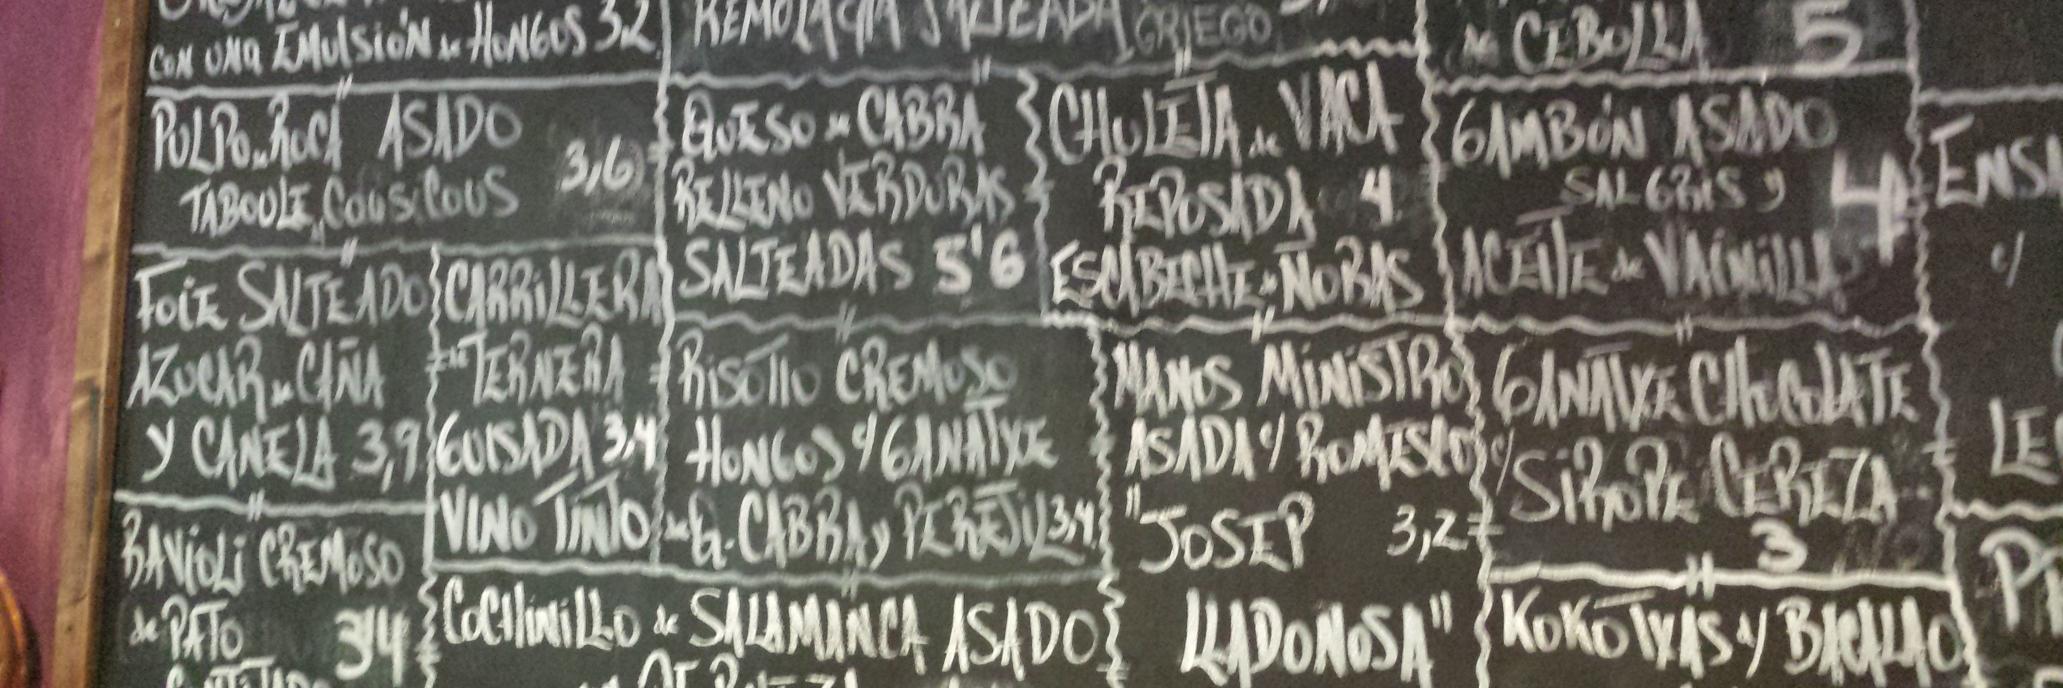 CON UNA EMULSIÓN de HONGOS 3,2
REMOLACHA SALTEADA GRIEGO
de CEBOLLA 5
PULPO de ROCA ASADO
TABOULE, COUSCOUS 3,6
QUESO de CABRA
RELLENO VERDURAS
SALTEADAS 5'6
CHULETA de VACA
REPOSADA 4
ESCABECHE de ÑORAS
GAMBÓN ASADO
SAL GRIS y 4
ACEITE de VAINILLA
FOIE SALTEADO
AZUCAR de CAÑA
Y CANELA 3,9
CARRILLERA
de TERNERA
GUISADA 3,4
VINO TINTO
RISOTTO CREMOSO
HONGOS c/ GANATXE
de Q. CABRA y PEREJIL 3,4
MANOS MINISTRO
ASADA c/ ROMESCO
"JOSEP 3,2
LLADONOSA"
GANATXE CHOCOLATE
c/ SIROPE CEREZA
3
RAVIOLI CREMOSO
de PATO 3'4
COCHINILLO de SALAMANCA ASADO
KOKOTXAS de BACALAO
c/